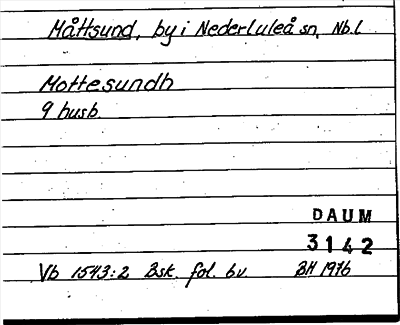 Måttsund, by i Nederluleå sn, Nb.l
Mottesundh
9 husb.
DAUM
3142
Vb 1543:2 Bsk. fol. 6v. BH 1976